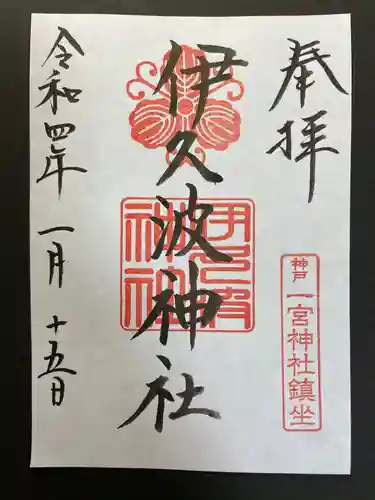 奉拝
神戸
一宮神社鎮坐
伊久波神社
伊久波神社
令和四年一月十五日